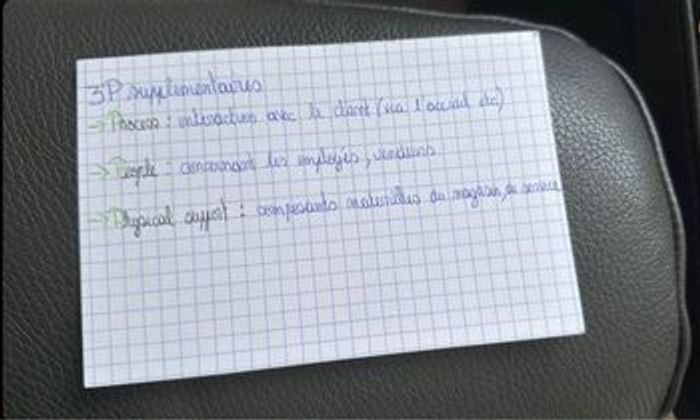 3P supplémentaires
→ Process : interaction avec le client (via l'accueil etc)
→ People : concernant les employés, vendeurs
→ Physical support : composants matérielles du magasin, du service